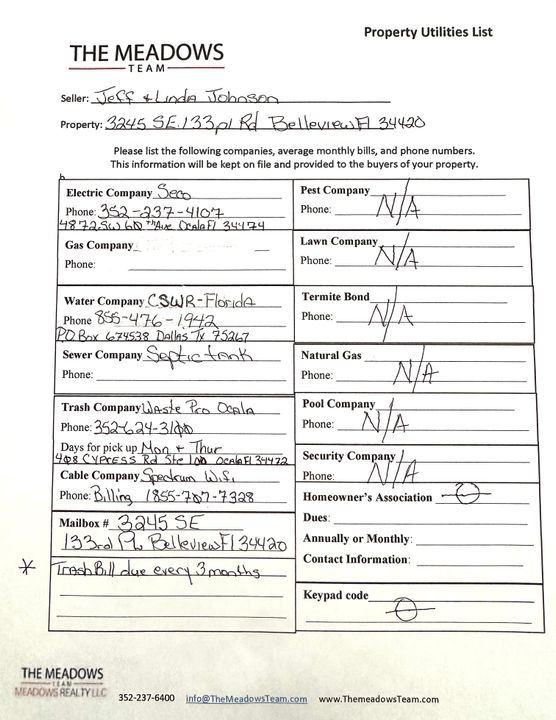 Property Utilities List
THE MEADOWS
TEAM
Seller: Jeff & Linda Johnson
Property: 3245 SE. 133 pl Rd Belleview Fl 34420
Please list the following companies, average monthly bills, and phone numbers.
This information will be kept on file and provided to the buyers of your property.
Electric Company Seco
Phone: 352-237-4107
4872 SW 60th Ave Ocala Fl 34474
Gas Company
Phone:
Water Company CSWR-Florida
Phone 855-476-1942
P.O. Box 674538 Dallas Tx 75267
Sewer Company Septic tank
Phone:
Trash Company Waste Pro Ocala
Phone: 352-624-3100
Days for pick up Mon + Thur
408 Cypress Rd Ste 100 Ocala Fl 34472
Cable Company Spectrum Wifi
Phone: Billing 1855-707-7328
Mailbox # 3245 SE
133rd PL Belleview Fl 34420
* Trash Bill due every 3 months
Pest Company N/A
Phone:
Lawn Company N/A
Phone:
Termite Bond N/A
Phone:
Natural Gas N/A
Phone:
Pool Company N/A
Phone:
Security Company N/A
Phone:
Homeowner's Association
Dues:
Annually or Monthly:
Contact Information:
Keypad code
THE MEADOWS
TEAM
MEADOWS REALTY LLC
352-237-6400 info@TheMeadowsTeam.com www.ThemeadowsTeam.com